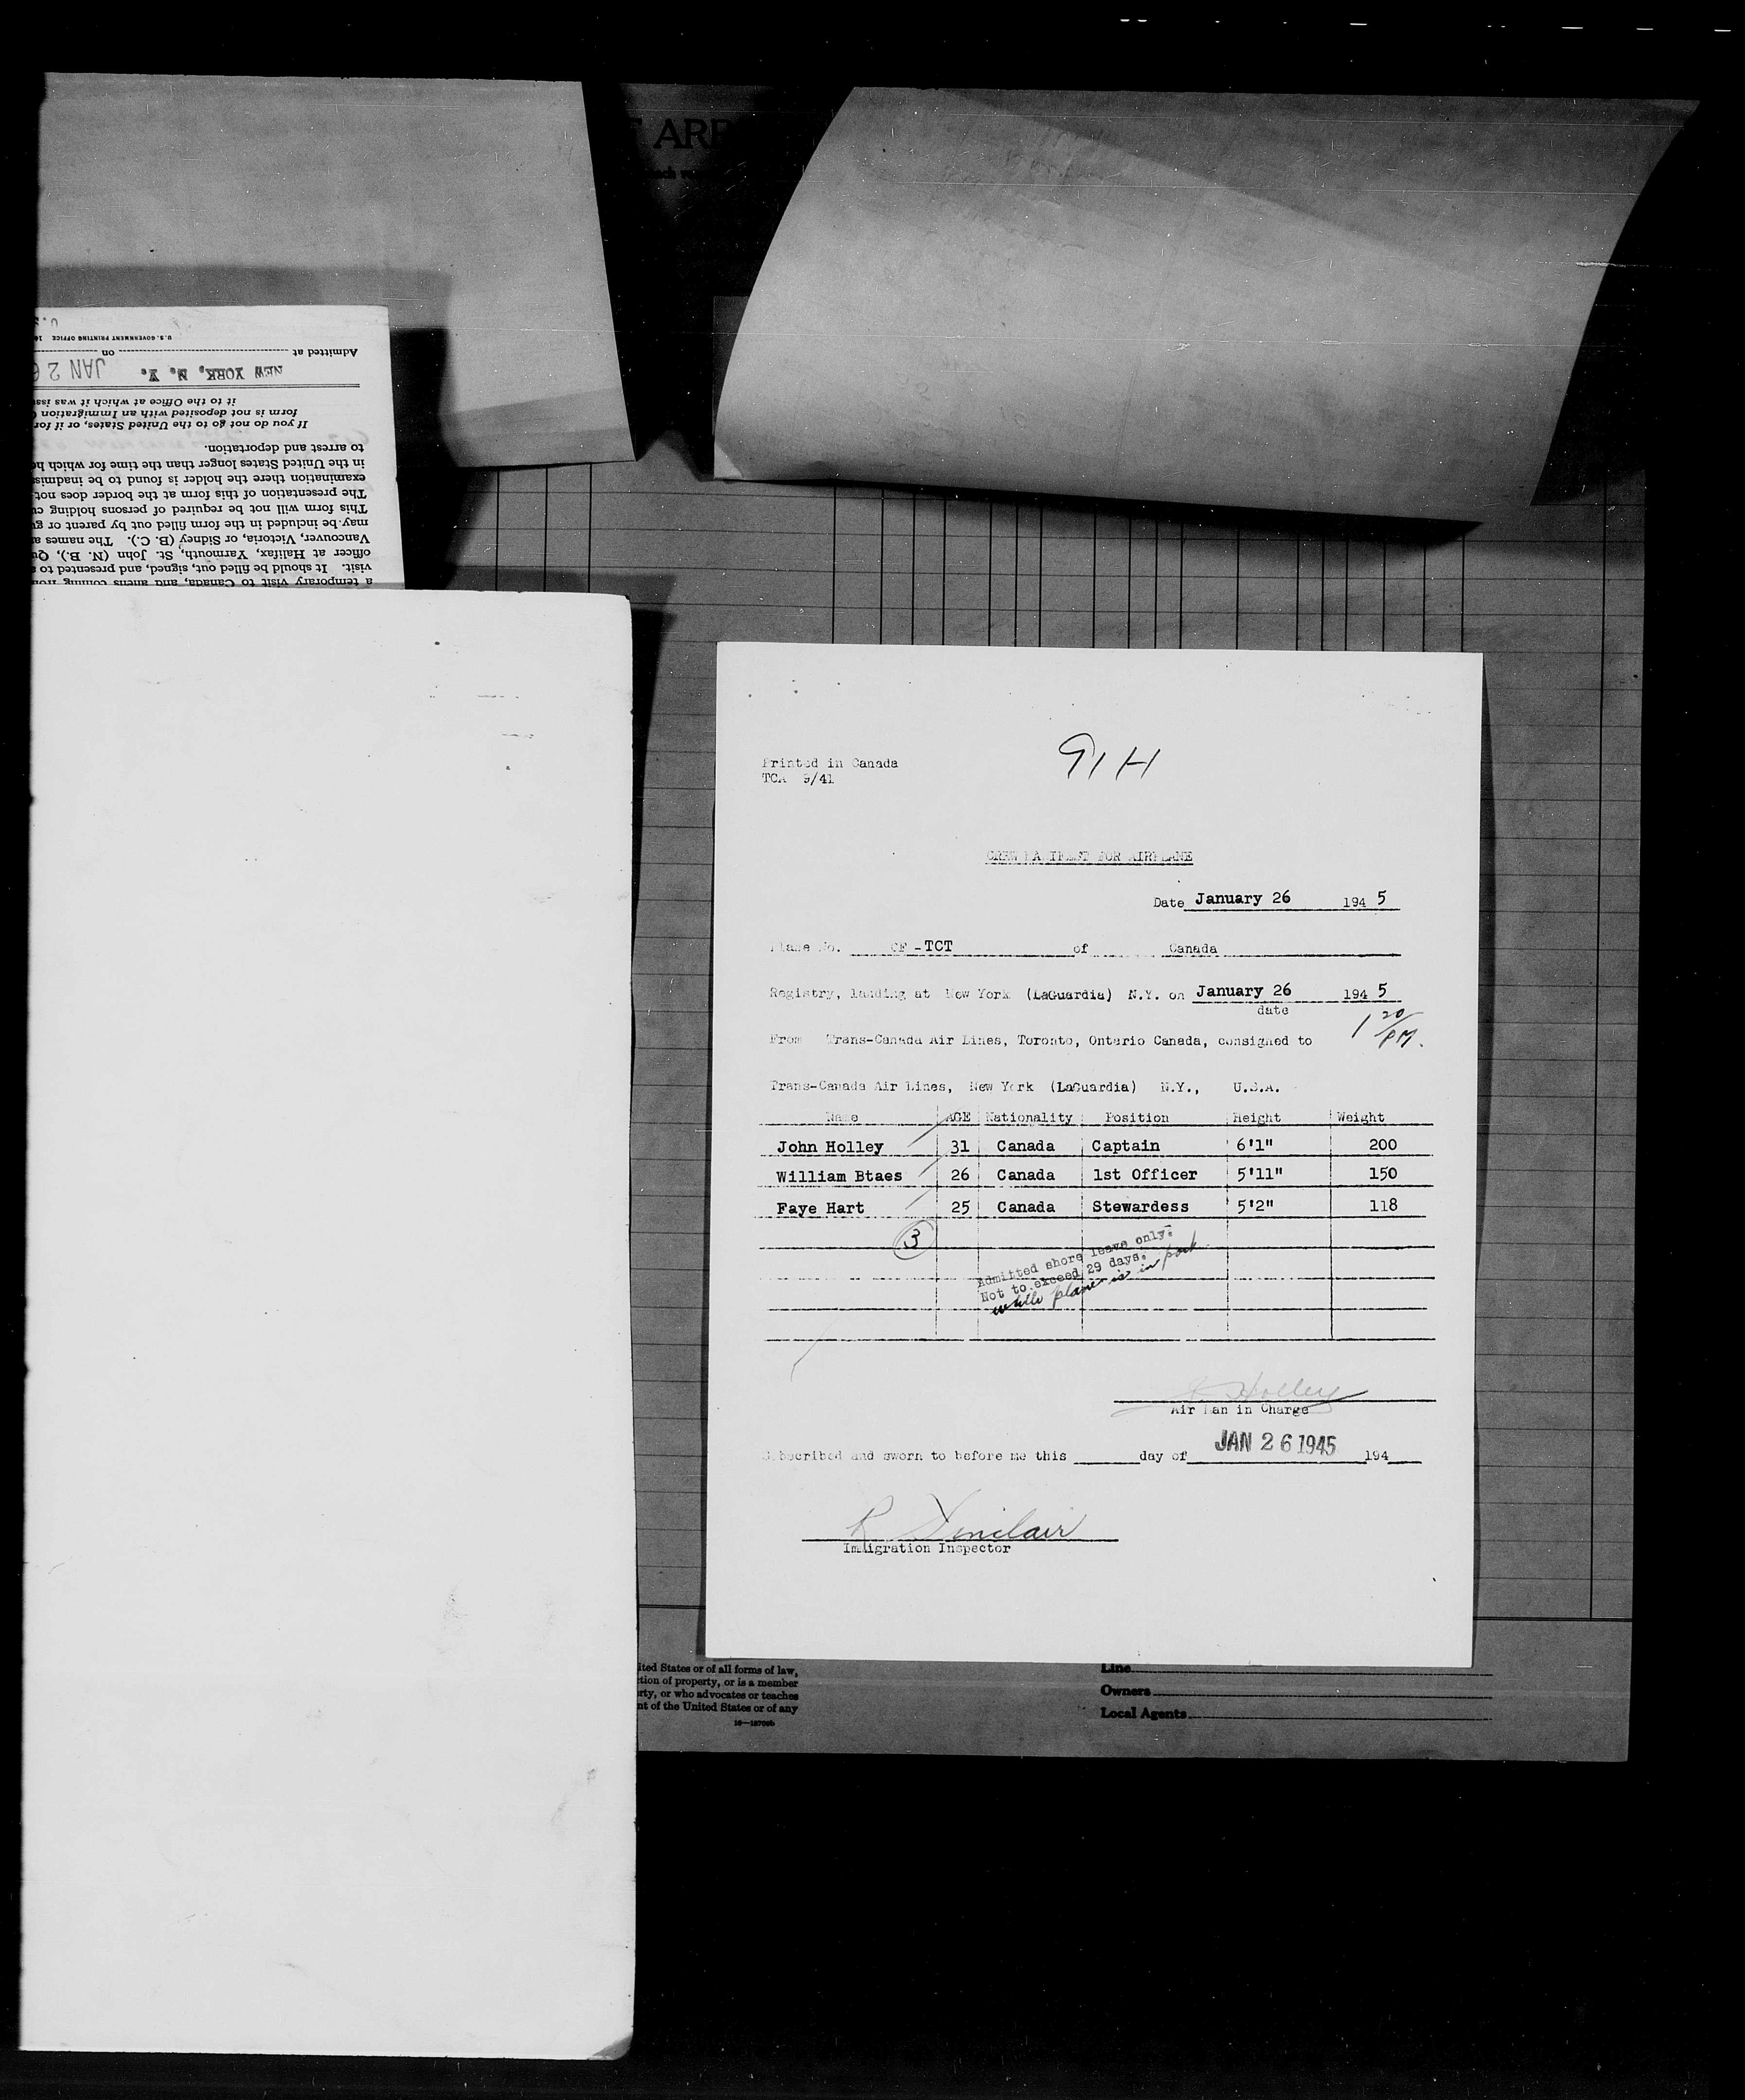 T ARR
ach ve
U.S.
U.S. GOVERNMENT PRINTING OFFICE 16
Admitted at on
NEW YORK, N. Y. JAN 26
it to the Office at which it was iss
form is not deposited with an Immigration
If you do not go to the United States, or if for
to arrest and deportation.
in the United States longer than the time for which h
examination there the holder is found to be inadmis
The presentation of this form at the border does not
This form will not be required of persons holding cu
may be included in the form filled out by parent or gu
Vancouver, Victoria, or Sidney (B. C.). The names a
officer at Halifax, Yarmouth, St. John (N. B.), Qu
visit. It should be filled out, signed, and presented to a
a temporary visit to Canada, and aliens coming from
91H
Printed in Canada
TCA 9/41
CREW MANIFEST FOR AIRPLANE
Date January 26 194 5
Plane No. CF-TCT of Canada
Registry, landing at New York (LaGuardia) N.Y. on January 26 194 5
date
1 20/PM.
From Trans-Canada Air Lines, Toronto, Onterio Canada, consigned to
Trans-Canada Air Lines, New York (LaGuardia) N.Y., U.S.A.
Name AGE Nationality Position Height Weight
John Holley 31 Canada Captain 6'1" 200
William Btaes 26 Canada 1st Officer 5'11" 150
Faye Hart 25 Canada Stewardess 5'2" 118
3
Admitted shore leave only.
Not to exceed 29 days.
while plane is in port
J Holley
Air Man in Charge
Subscribed and sworn to before me this day of JAN 26 1945 194
R Sinclair
Immigration Inspector
ited States or of all forms of law,
tion of property, or is a member
rty, or who advocates or teaches
nt of the United States or of any
Line
Owners
Local Agents